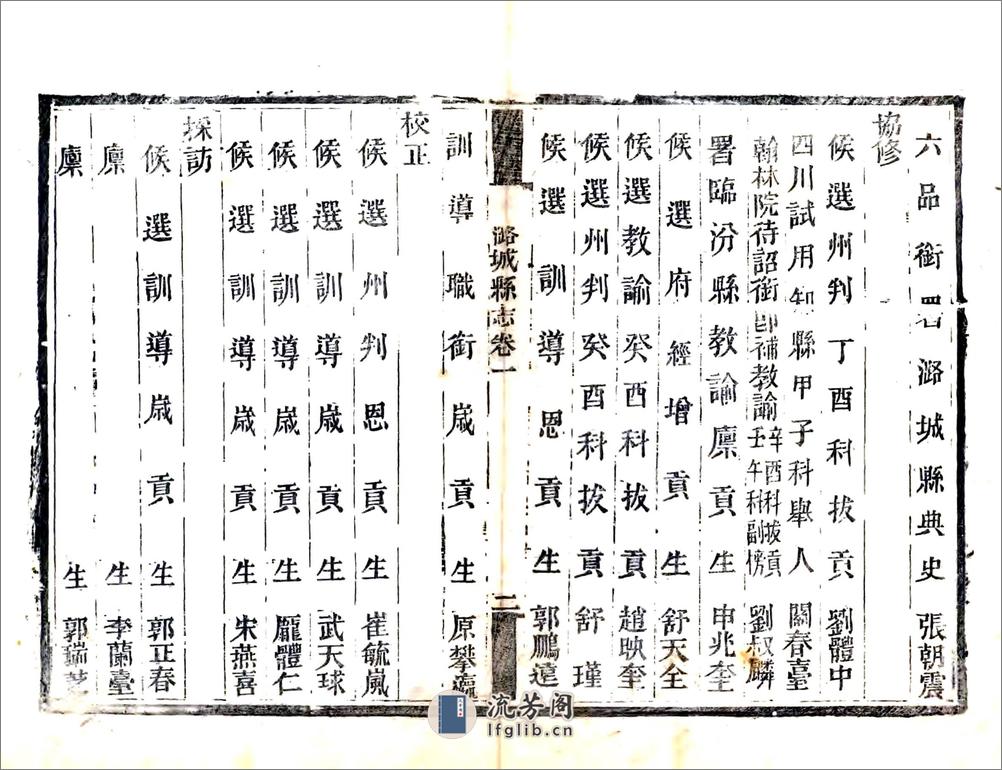 六品銜署潞城縣典史張朝震
協修
候選州判丁酉科拔貢劉體中
四川試用知縣甲子科舉人關春臺
翰林院待詔銜卽補教諭辛酉科拔貢壬午科副榜劉叔麟
署臨汾縣教諭廩貢生申兆奎
候選府經增貢生舒天全
候選教諭癸酉科拔貢趙映奎
候選州判癸酉科拔貢舒瑾
候選訓導恩貢生郭鵬遠
潞城縣志卷一
二
訓導職銜歲貢生原攀瀛
校正
候選州判恩貢生崔毓嵐
候選訓導歲貢生武天球
候選訓導歲貢生龐體仁
候選訓導歲貢生宋燕喜
採訪
候選訓導歲貢生郭正春
廩生李蘭臺
廩生郭瑞芝
流芳阁
lfglib.cn